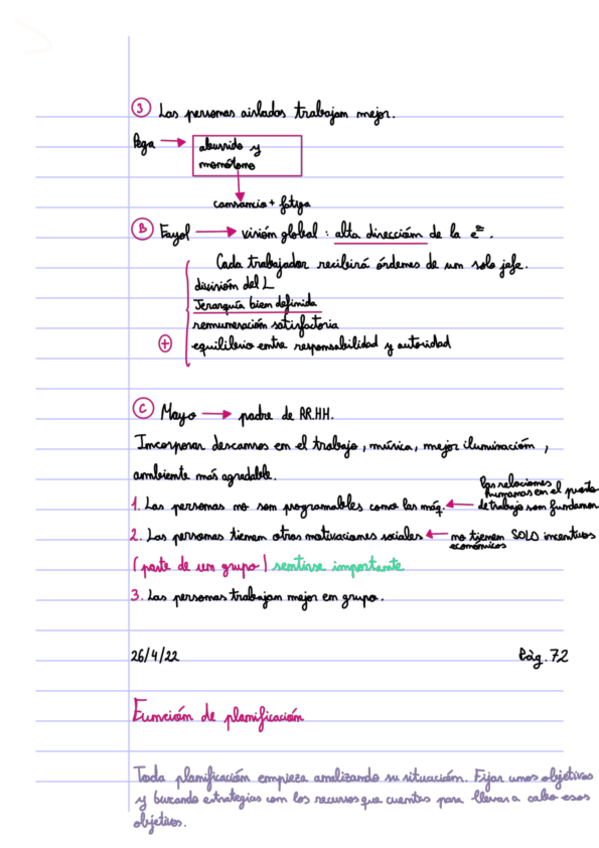 3 Las personas aisladas trabajan mejor.
Pega → aburrido y
monótono
cansancio + fatiga
B Fayol → visión global : alta dirección de la eª.
Cada trabajador recibirá órdenes de un solo jefe.
división del L
Jerarquía bien definida
remuneración satisfactoria
+ equilibrio entre responsabilidad y autoridad
C Mayo → padre de RR.HH.
Incorporar descansos en el trabajo, música, mejor iluminación,
ambiente más agradable.
las relaciones
humanas en el puesto
1. Las personas no son programables como las máq. ← de trabajo son fundamen
2. Las personas tienen otras motivaciones sociales ← no tienen SOLO incentivos
económicos
(parte de un grupo) sentirse importante
3. Las personas trabajan mejor en grupo.
26/4/22 Pàg. 72
Función de planificación
Toda planificación empieza analizando su situación. Fijar unos objetivos
y buscando estrategias con los recursos que cuentas para llevar a cabo esos
objetivos.